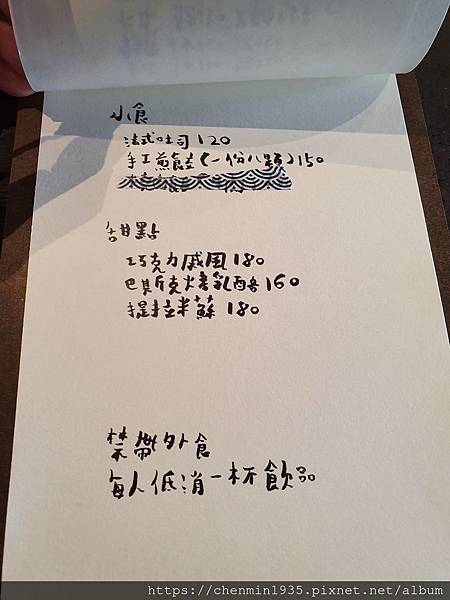 小食
法式吐司 120
手工煎餃(一份八顆)150
甜點
巧克力戚風 180
巴斯克烤乳酪 160
提拉米蘇 180
禁帶外食
每人低消一杯飲品
https://chenmin1935.pixnet.net/album